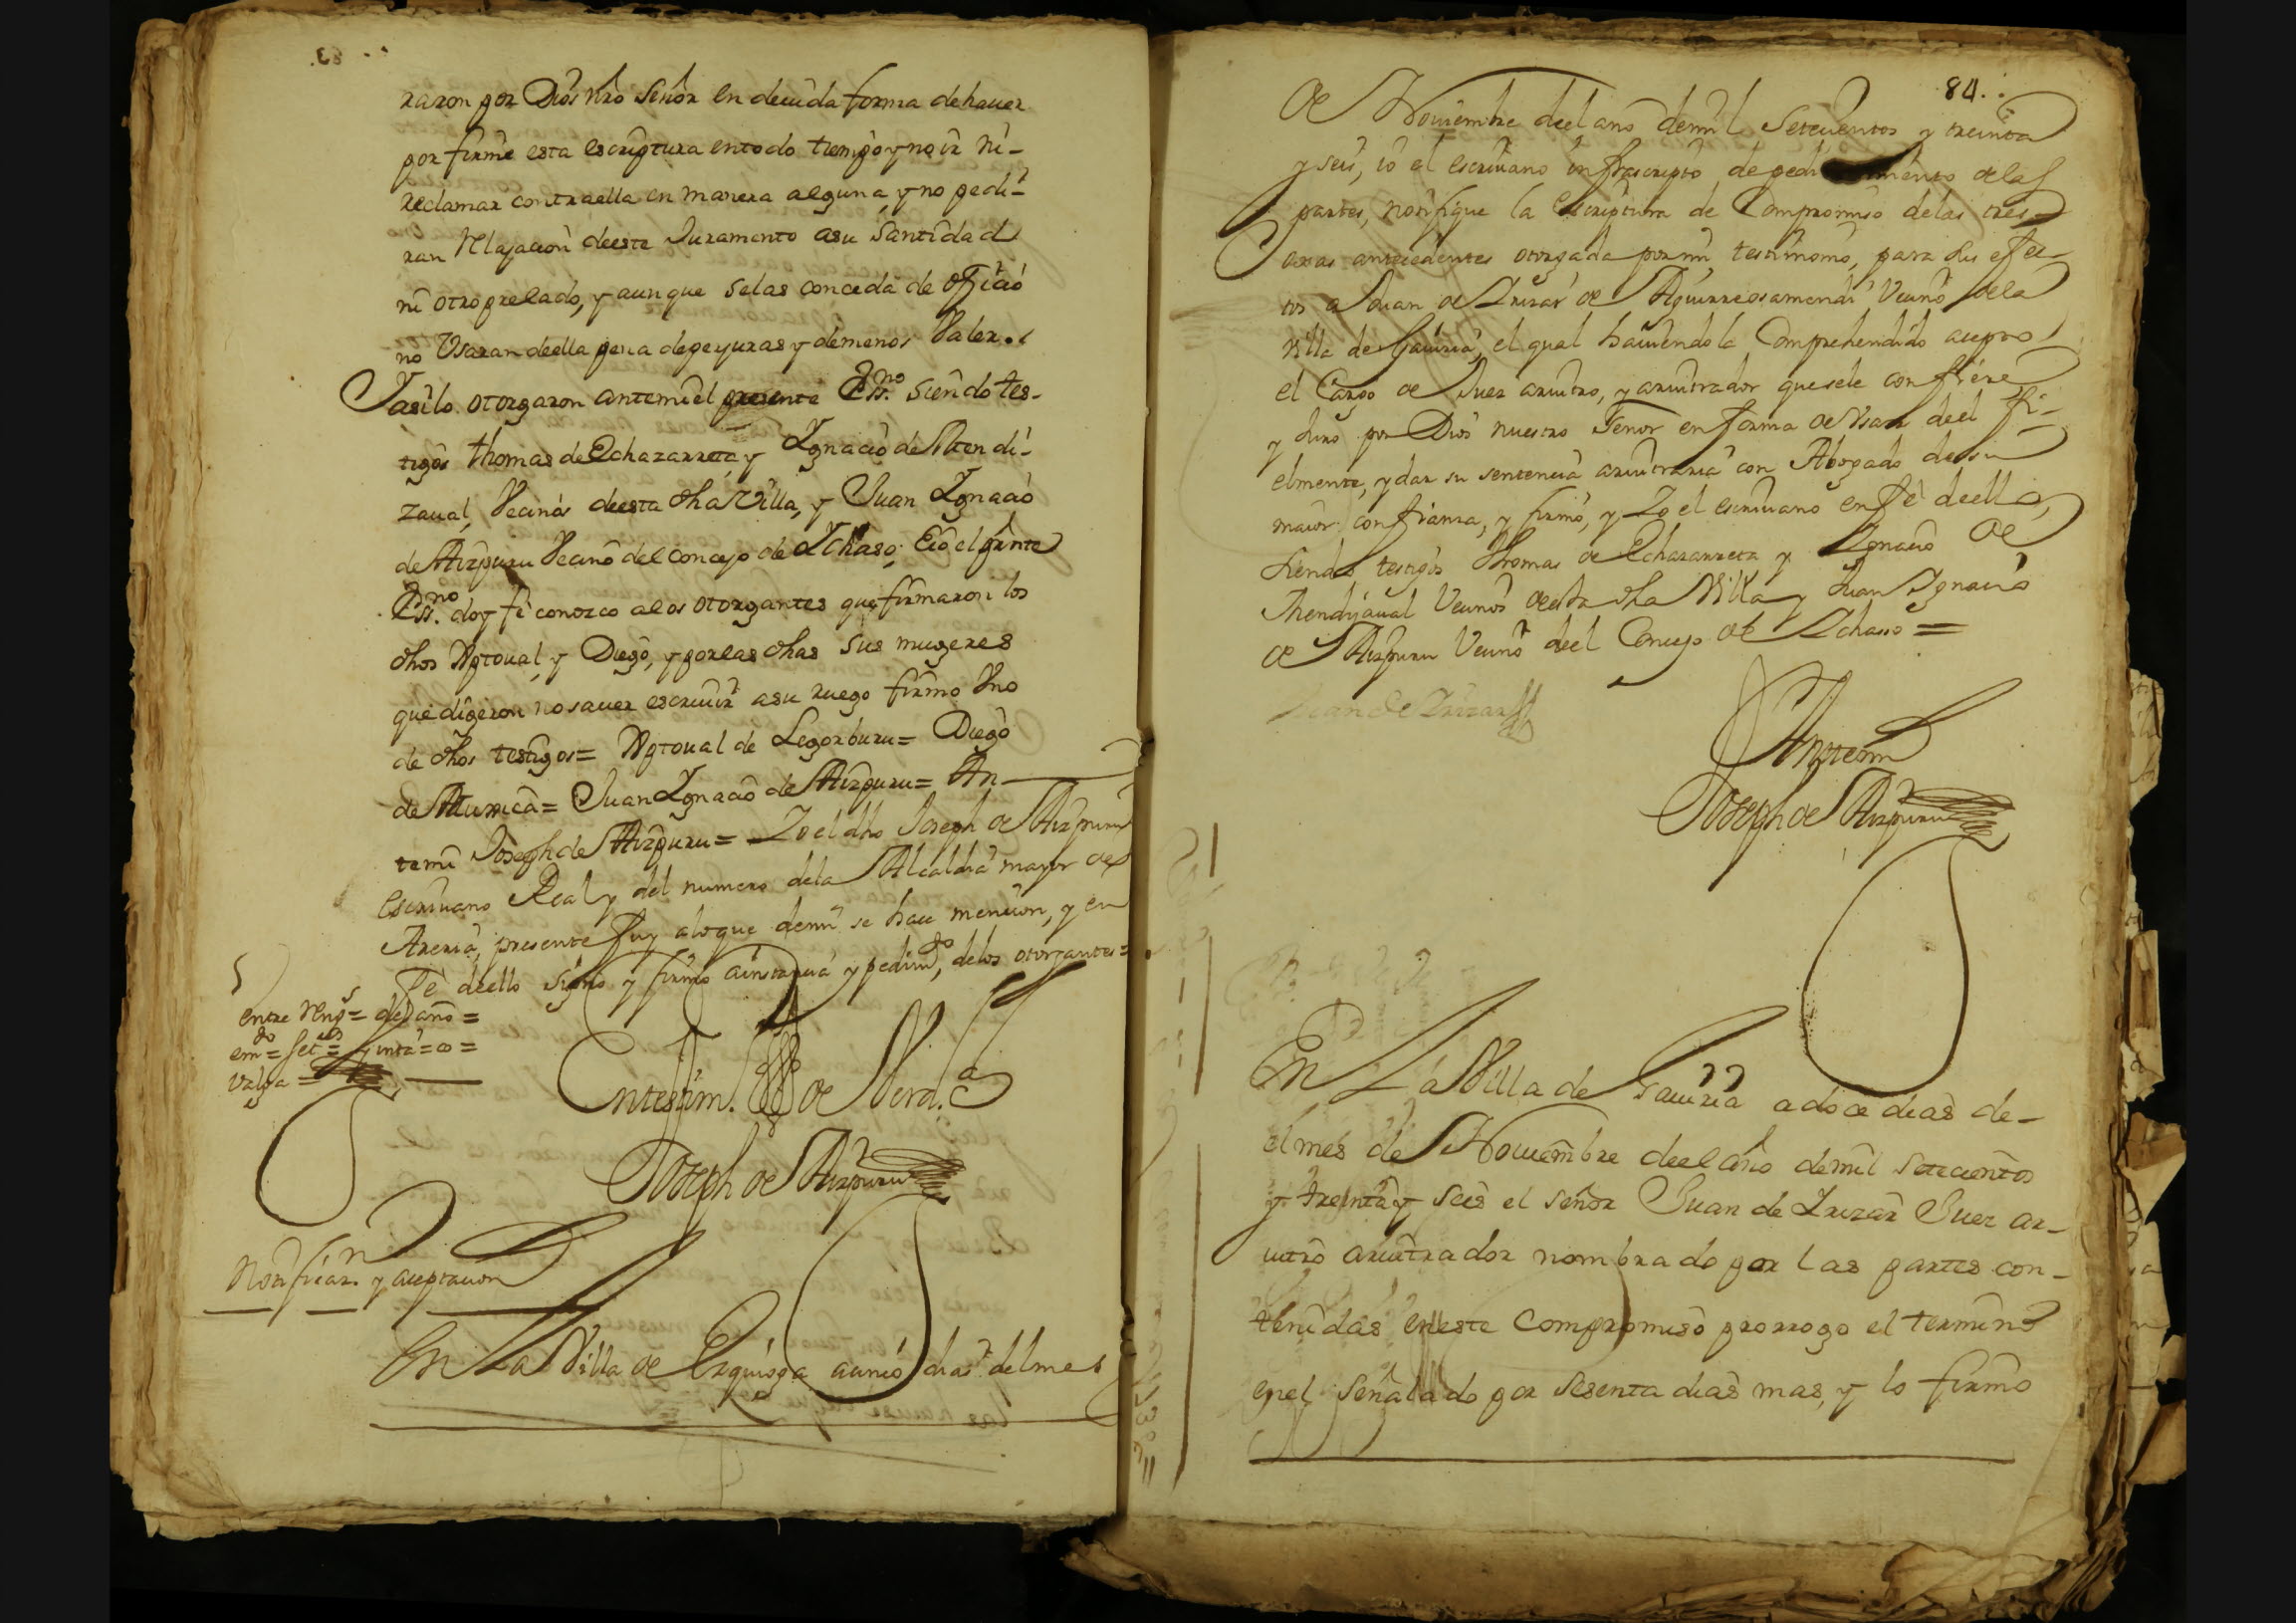 raron por Dios nro Señor en deuida forma de hauer
por firme esta escriptura en todo tiempo y no ir ni-
reclamar contra ella en manera alguna, y no pedi-
ran relajacion de este Juramento a su Santidad
ni otro prelado, y aunque se las conceda de oficio
no Usaran de ella pena de perjuras y de menos Valer.
Y asi lo otorgaron ante mi el presente Essno. siendo tes-
tigos thomas de Echazarreta y Ygnacio de Mendi-
zaual, Vecinos de esta dha Villa, y Juan Ygnacio
de Aizpuru Vecino del concejo de Ychaso; E io el prnte
Essno. doy fè conozco a los otorgantes que firmaron los
dhos Xptoual, y Diego, y por las dhas sus mugeres
que digeron no sauer escriuir a su ruego firmo Uno
de dhos testigos = Xptoual de Legorburu = Diego
de = Juan Ygnacio de Aizpuru = An-
temi Joseph de Aizpuru = Yo el dho Joseph de Aizpuru
escriuano Real y del numero de la Alcaldia mayor de
Areria, presente fuy a lo que de mi se hace mencion, y en
fè de ello signo y firmo a instancia y pedimto, de los otorgantes =
entre Rengs = del año =
emdo = set =
Valga =
En testim. de Verd.
Joseph de Aizpuru
Notificazn. y aceptacion
En La Villa de Ezquioga a cinco dias del mes
84.
de Nouiembre de el año de mil setecientos y treinta
y seis, io el escriuano infrascripto de pedimiento de las
partes, notifique la escriptura de Compromiso de las tres
oxas antecedentes otorgada por mi testimonio, para sus efec-
tos a Juan de Yrizar de Aguirreosamendi Vecino de la
villa de Gauiria, el qual hauiendola Comprehendido acepto
el Cargo de Juez aruitro, y aruitrador que se le confiere
y Juro por Dios nuestro Señor en forma de Usar de el fi-
elmente, y dar su sentencia aruitraria con Abogado de su
maior confianza, y firmó, y Yo el escriuano en fè de ello,
siendo testigos Thomas de Echazarreta y Ygnacio de
Mendizaual Vecinos de esta dha Villa y Juan Ygnacio
de Aizpuru Vecino de el Concejo de Ychasso =
Juan de Yrizar
Antemi
Joseph de Aizpuru
En La Villa de Gauiria a doce dias de-
el mes de Nouiembre de el año de mil setecientos
y treinta y seis el señor Juan de Yrizar Juez ar-
uitro aruitrador nombrado por las partes con-
tenidas en este compromiso prorrogo el termino
en el señalado por sesenta dias mas, y lo firmo